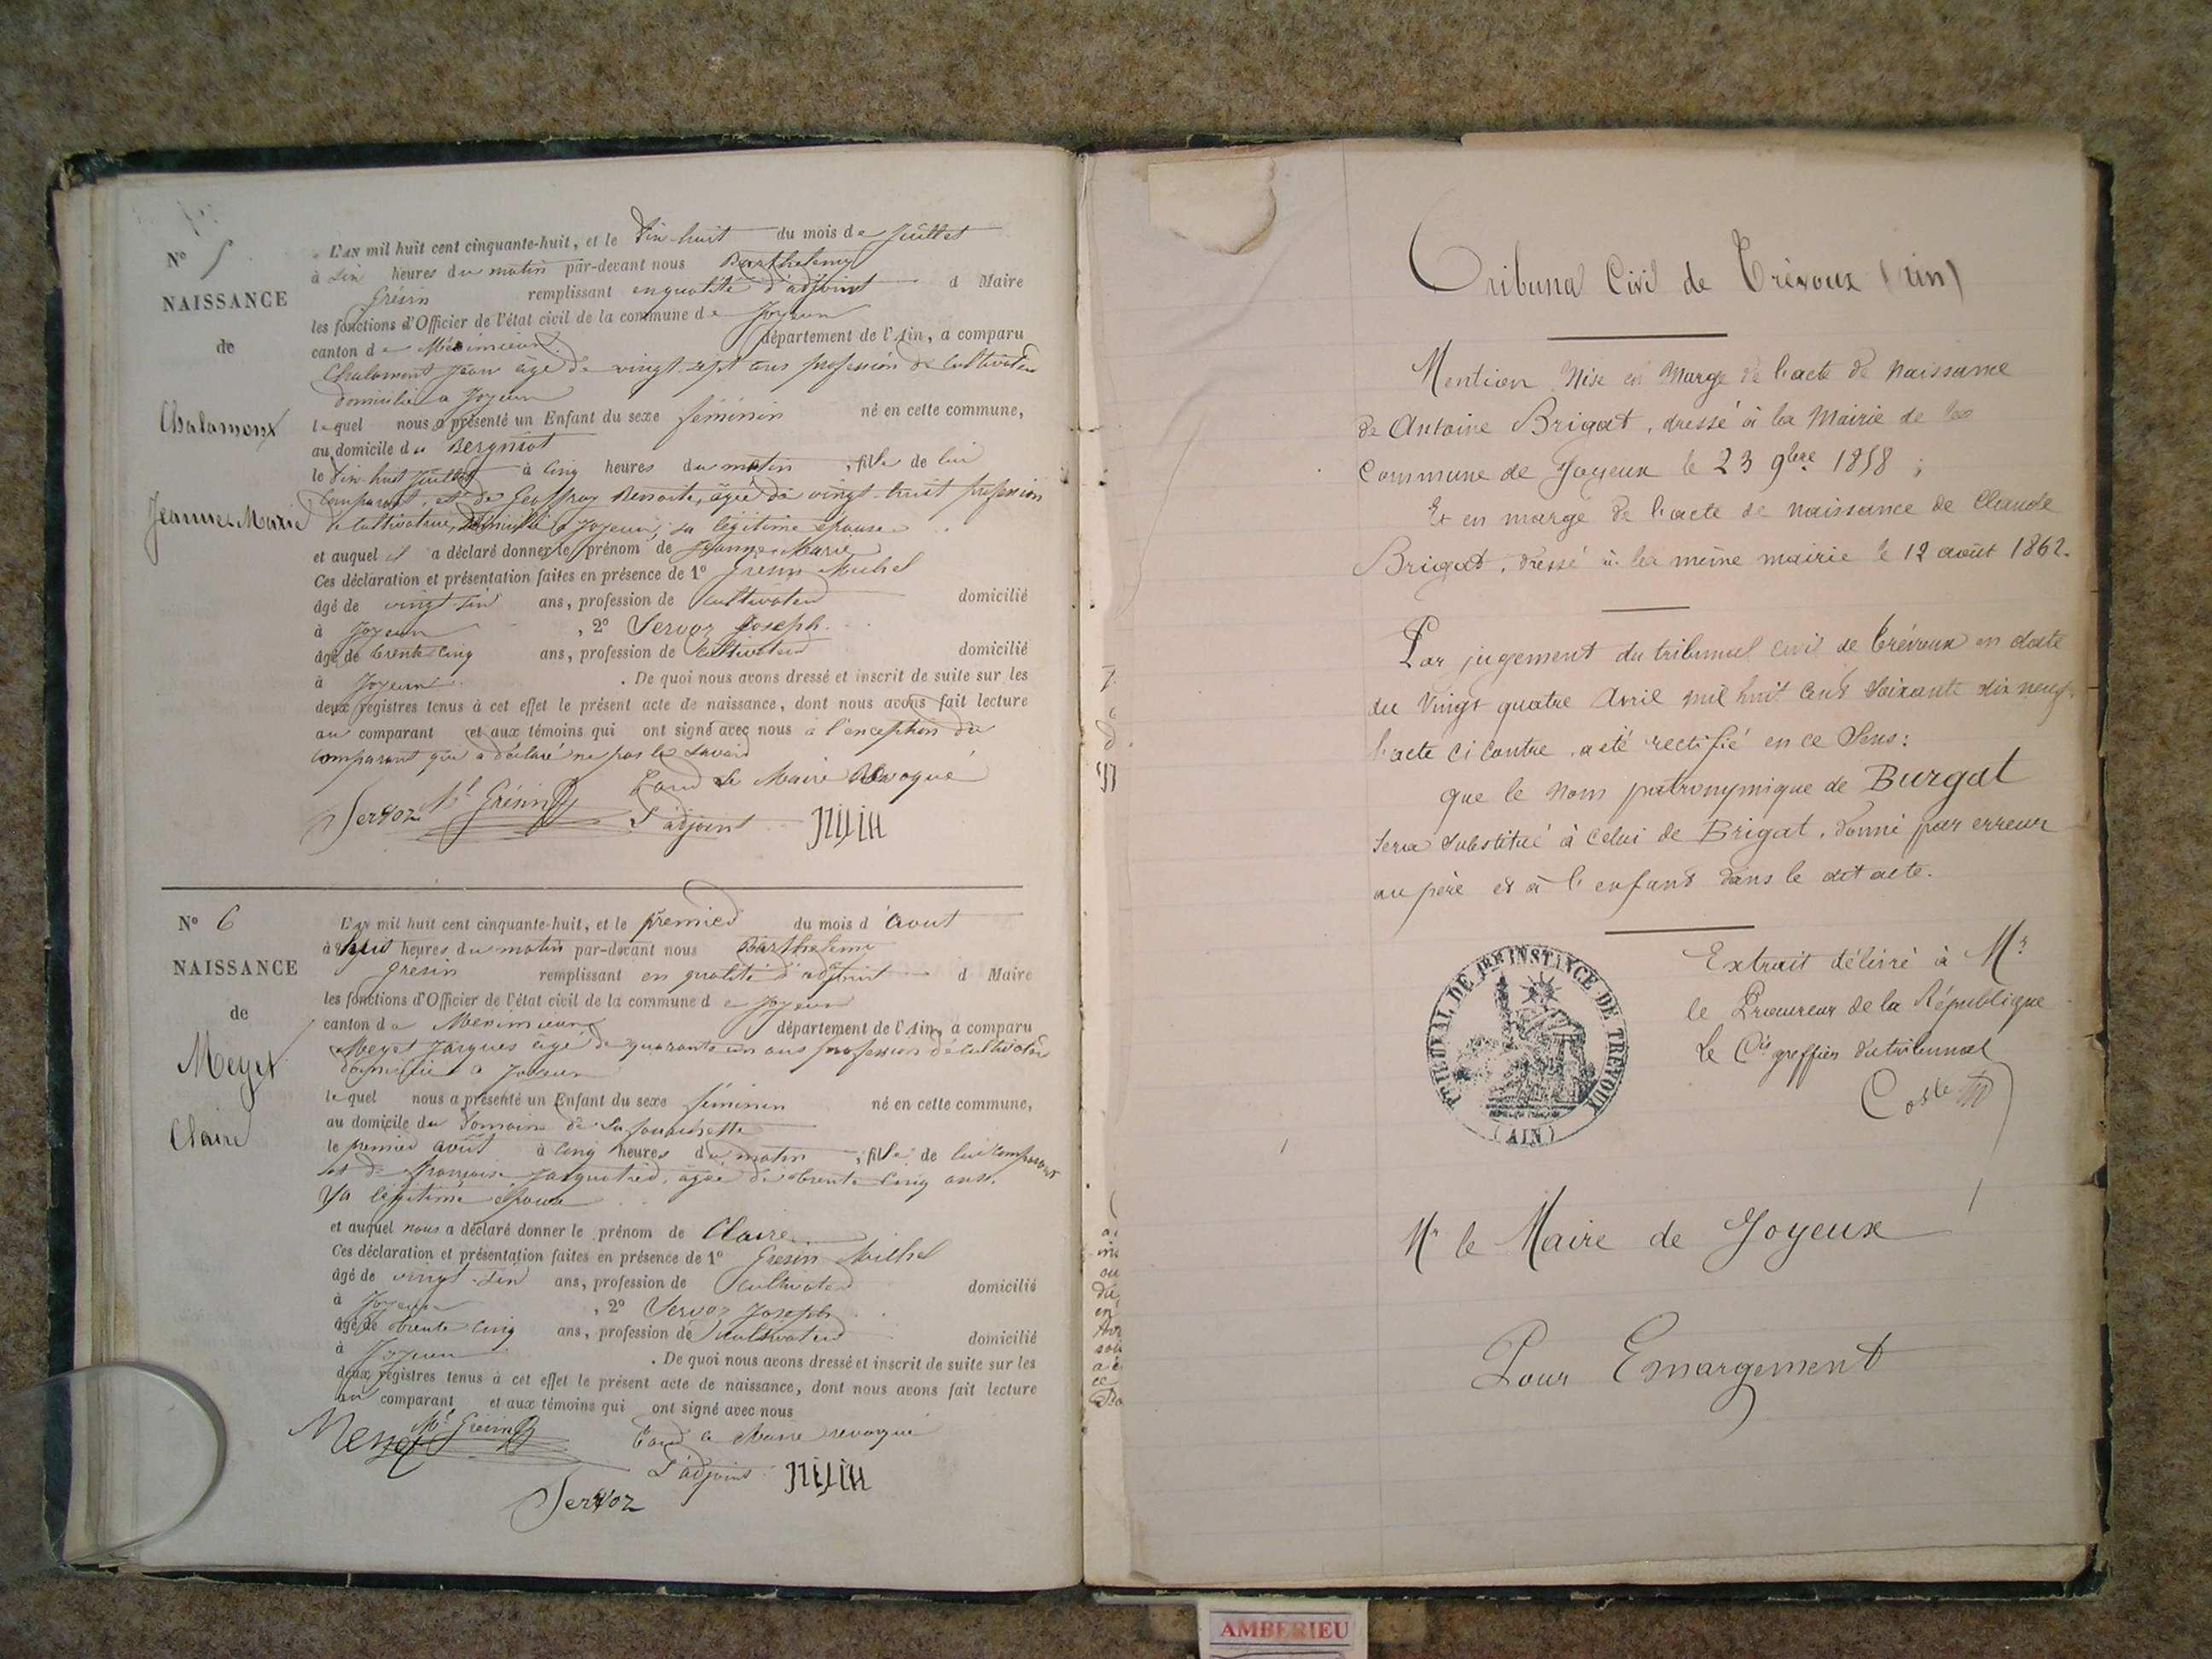 N° 5
NAISSANCE
de
Chalamont
Jeanne Marie
L'AN mil huit cent cinquante-huit, et le dix huit du mois de Juillet
à dix heures du matin par-devant nous Barthelemy
Grésin remplissant en qualité d'adjoint d Maire
les fonctions d'Officier de l'état civil de la commune de Joyeux
canton de Méximieux département de l'Ain, a comparu
Chalamont Jean âgé de vingt-sept ans profession de Cultivateur
domicilié à Joyeux
lequel nous a présenté un Enfant du sexe féminin né en cette commune,
au domicile du Bergniot
le dix huit Juillet à cinq heures du matin, fille de lui
comparant, et de Geoffray Benoite, âgée de vingt-huit profession
de cultivatrice, domiciliée à Joyeux, sa légitime épouse
et auquel il a déclaré donner le prénom de Jeanne Marie
Ces déclaration et présentation faites en présence de 1° Gresin Michel
âgé de vingt six ans, profession de Cultivateur domicilié
à Joyeux, 2° Servoz Joseph.
âgé de trente cinq ans, profession de Cultivateur domicilié
à Joyeux. De quoi nous avons dressé et inscrit de suite sur les
deux registres tenus à cet effet le présent acte de naissance, dont nous avons fait lecture
au comparant et aux témoins qui ont signé avec nous à l'exception du
comparant qui a déclaré ne pas le savoir
Pour Le Maire Révoqué
Servoz Mel Grésin L'adjoint
N° 6
NAISSANCE
de
Meyet
Claire
L'AN mil huit cent cinquante-huit, et le premier du mois d'Aout
à huit heures du matin par-devant nous Barthelemi
Gresin remplissant en qualité d'adjoint d Maire
les fonctions d'Officier de l'état civil de la commune de Joyeux
canton de Meximieux département de l'Ain, a comparu
Meyet Jacques âgé de quarante un ans profession de cultivateur
domicilié à Joyeux
lequel nous a présenté un Enfant du sexe féminin né en cette commune,
au domicile du Domaine de La
le premier août à cinq heures du matin, fille de lui comparant
et de Françoise âgée de trente cinq ans.
Sa légitime épouse
et auquel nous a déclaré donner le prénom de Claire
Ces déclaration et présentation faites en présence de 1° Gresin Michel
âgé de vingt-six ans, profession de Cultivateur domicilié
à Joyeux, 2° Servoz Joseph
âgé de trente cinq ans, profession de Cultivateur domicilié
à Joyeux. De quoi nous avons dressé et inscrit de suite sur les
deux registres tenus à cet effet le présent acte de naissance, dont nous avons fait lecture
au comparant et aux témoins qui ont signé avec nous
Meyet Mel Gresin Pour le Maire revoqué
L'adjoint
Servoz
Tribunal Civil de Trévoux (Ain)
Mention Mise en Marge de l'acte de Naissance
de Antoine Brigat, dressé à la Mairie de la
Commune de Joyeux le 23 9bre 1858;
Et en marge de l'acte de naissance de Claude
Brigat, dressé à la même mairie le 12 août 1862.
Par jugement du tribunal civil de Trévoux en date
du Vingt quatre Avril mil huit cent soixante dix neuf
l'acte ci contre a été rectifié en ce Sens:
que le nom patronymique de Burgat
sera substitué à celui de Brigat, donné par erreur
au père et à l'enfant dans le dit acte.
Extrait délivré à Mr
le Procureur de la République
Le Cis greffier du tribunal
Coste
TRIBUNAL DE 1ERE INSTANCE DE TREVOUX
(AIN)
Mr le Maire de Joyeux
Pour Emargement
AMBERIEU